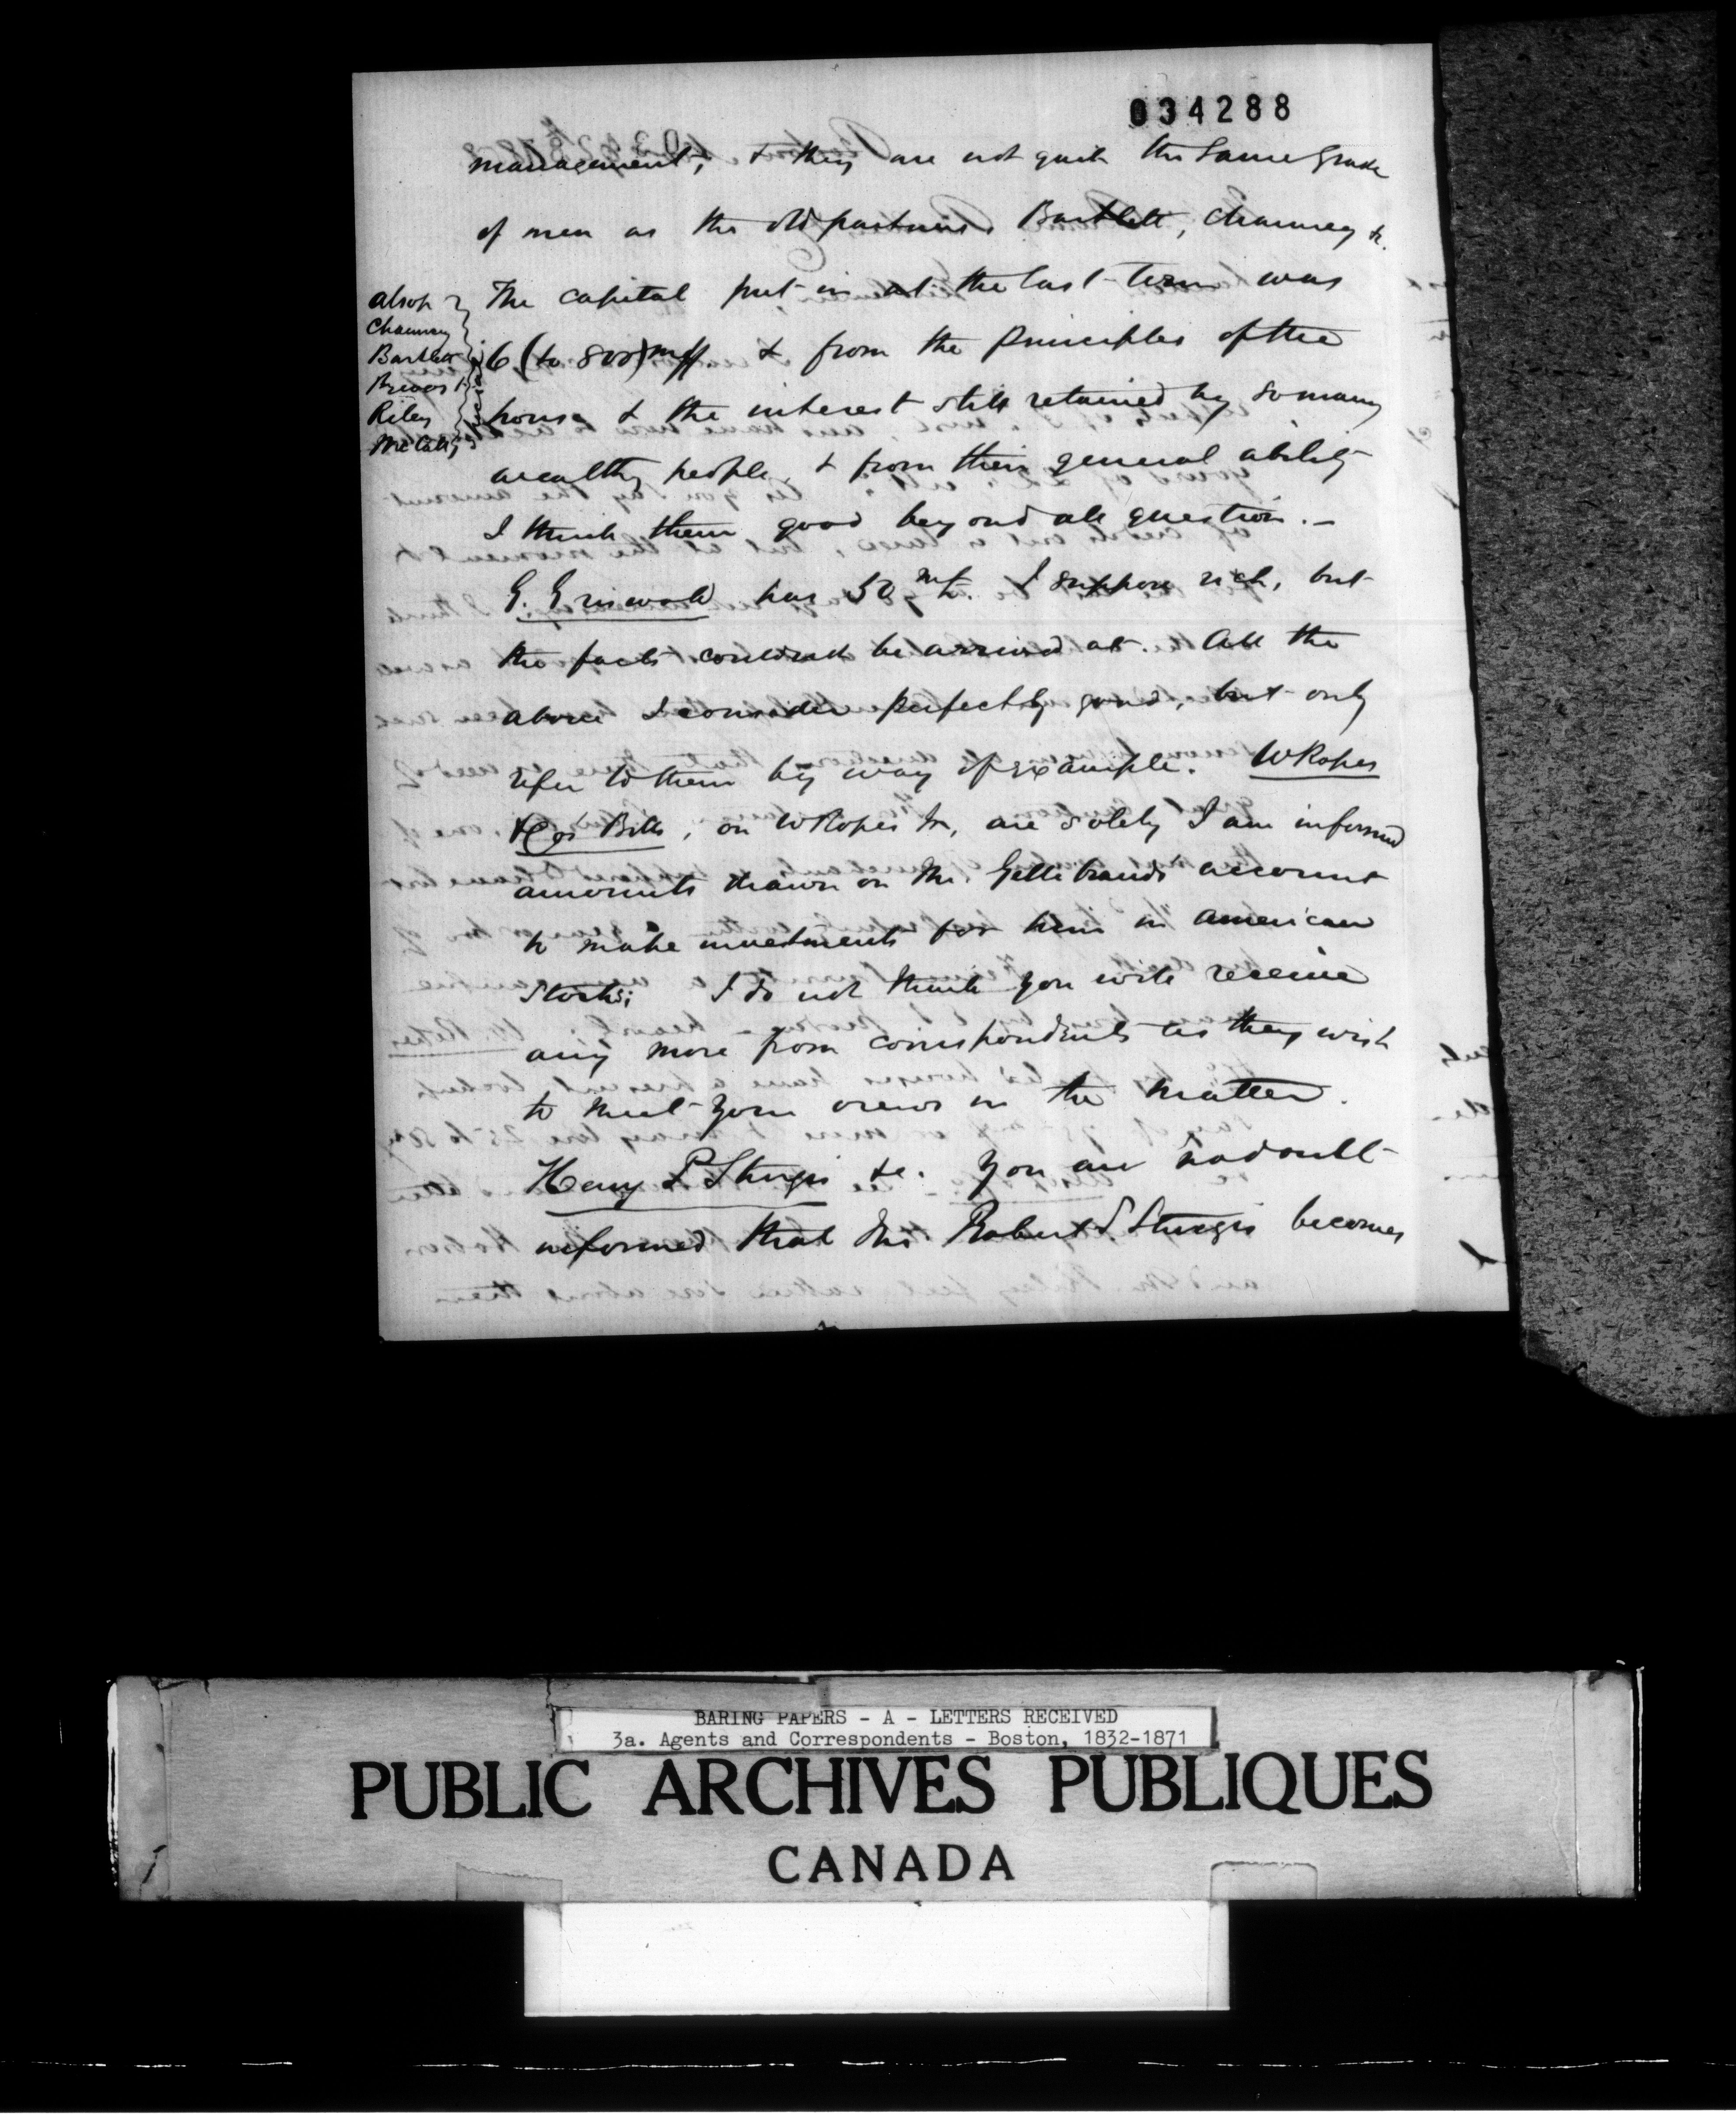 034288
management, & they are not quite the same grade
of men as the old partners. Bartlett, Chauncey &c.
Alsop
Chauncey
Bartlett
Riley
The capital put in at the last term was
6 (to 800) m/ & from the principles of the
house & the interest still retained by so many
wealthy people, & from their general ability
I think them good beyond all question.—
G. Griswold has 50 I suppose rich, but
the facts could not be arrived at. All the
above I consider perfectly good, but only
refer to them by way of example. W Ropes
& Cos Bills, on W Ropes Jr, are solely I am informed
amounts drawn on Mr. Gellibrands account
to make investments for him in American
Stocks; I do not think you will receive
any more from correspondents as they wish
to meet your views in the matter.
Henry P Sturgis &c. You are no doubt
informed that Mr. Robert S. Sturgis becomes
BARING PAPERS - A - LETTERS RECEIVED
3a. Agents and Correspondents - Boston, 1832-1871
PUBLIC ARCHIVES PUBLIQUES
CANADA